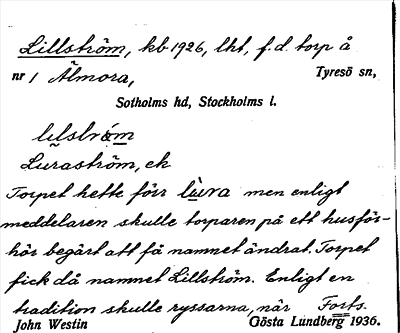 Lillström, kb 1926, lht, f.d. torp å
nr 1 Älmora, Tyresö sn,
Sotholms hd, Stockholms l.
lilström
Luraström, ek
Torpet hette förr lùra men enligt
meddelaren skulle torparen på ett husför-
hör begärt att få namnet ändrat. Torpet
fick då namnet Lillström. Enligt en
tradition skulle ryssarna, när Forts.
John Westin Gösta Lundberg 1936.